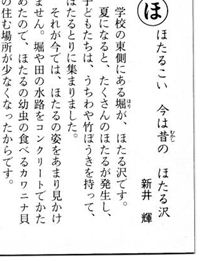 ほ
ほたるこい 今は昔の ほたる沢
新井 輝
学校の東側にある堀が、ほたる沢です。
夏になると、たくさんのほたるが発生し、
子どもたちは、うちわや竹ぼうきを持って、
ほたるとりに集まりました。
それが今では、ほたるの姿をあまり見かけ
ません。堀や田の水路をコンクリートでかた
めたので、ほたるの幼虫の食べるカワニナ貝
の住む場所が少なくなったからです。